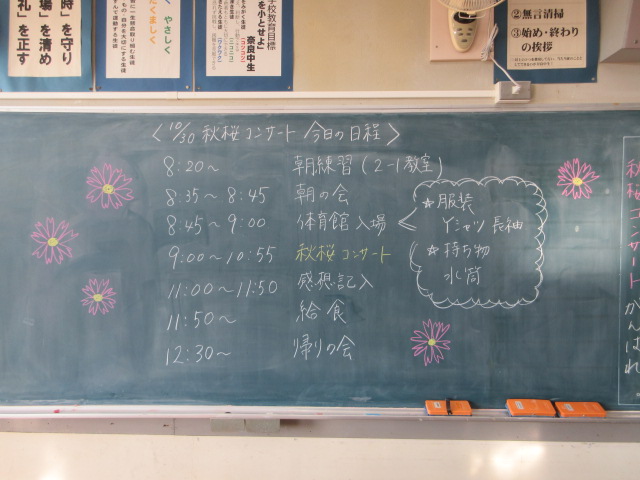 時」を守り
場」を清め
礼」を正す
やさしく
たくましく
学校教育目標
を小とせよ」
奈良中生
②無言清掃
③始め・終わり
の挨拶
〈10/30 秋桜コンサート 今日の日程〉
8:20〜 朝練習(2-1教室)
8:35〜8:45 朝の会
8:45〜9:00 体育館入場
9:00〜10:55 秋桜コンサート
11:00〜11:50 感想記入
11:50〜 給食
12:30〜 帰りの会
☆服装
Yシャツ長袖
☆持ち物
水筒
秋桜コンサートがんばれ